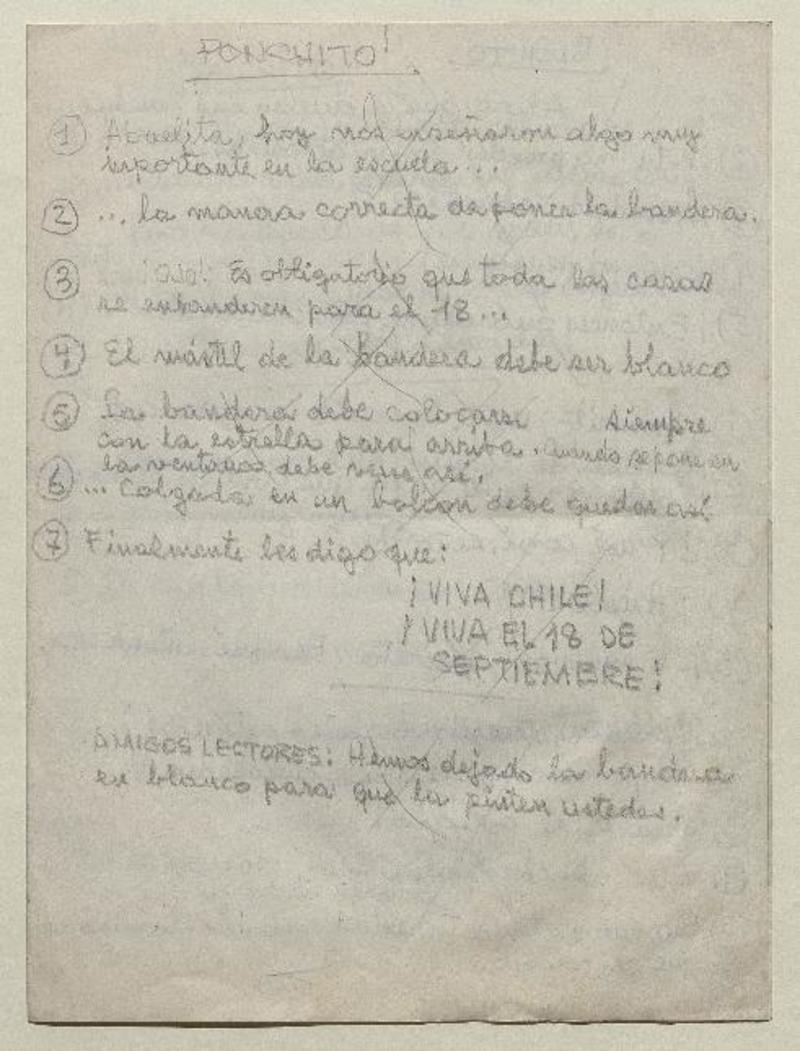 PONCHITO!
1 Abuelita, hoy nos enseñaron algo muy
importante en la escuela...
2 ... la manera correcta de poner la bandera.
3 ¡Ojo! Es obligatorio que toda las casas
se enbanderen para el 18...
4 El mástil de la bandera debe ser blanco
5 La bandera debe colocarse siempre
con la estrella para arriba. Cuando se pone en
la ventana, debe verse así.
6 ... Colgada en un balcon debe quedar así
7 Finalmente les digo que:
¡VIVA CHILE!
¡VIVA EL 18 DE
SEPTIEMBRE!
AMIGOS LECTORES: Hemos dejado la bandera
en blanco para que la pinten ustedes.